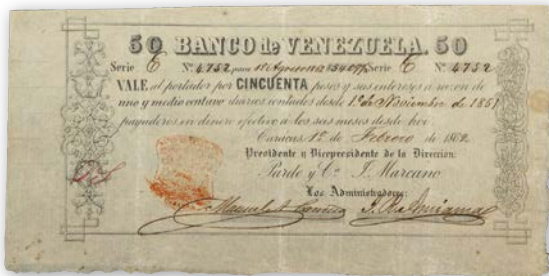 50 BANCO de VENEZUELA. 50
Serie C Nº 4752 Serie C Nº 4752
VALE al portador por CINCUENTA pesos y sus intereses a razon de
uno y medio centavo diarios contados desde 1º de Noviembre de 1861
pagaderos en dinero efectivo a los seis meses desde hoy.
Caracas, 1º de Febrero de 1862
Presidente y Vicepresidente de la Direccion:
Pardo y Cª J. Marcano
Los Administradores: